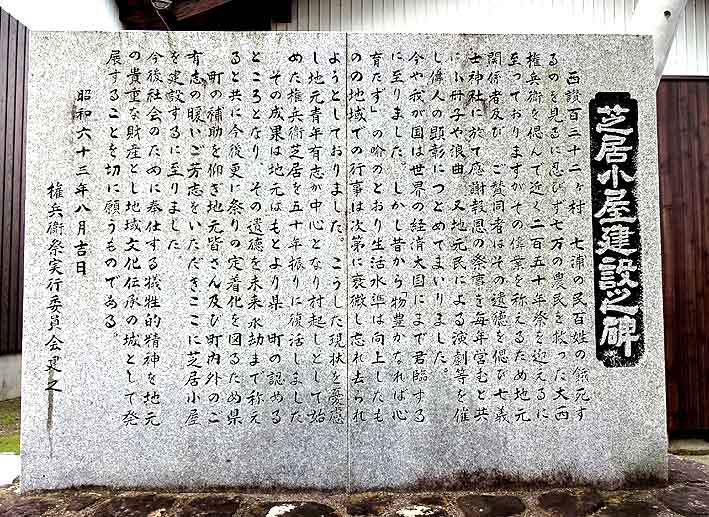 芝居小屋建設之碑
西讃百三十二ヶ村 七浦の民百姓の餓死す
るのを見るに忍びず七万の農民を救った大西
権兵衛を偲んで近く二百五十年祭を迎えるに
至っておりますがその偉業を称えるため地元
関係者及び、ご賛同者はその遺徳を偲び七義
士神社に於て感謝報恩の祭事を毎年営むと共
に小冊子や浪曲、又地元民による演劇等を催
し偉人の顕彰につとめてまいりました。
今や我が国は世界の経済大国にまで君臨する
に至りました。しかし昔から物豊かなれば心
育たず」の喩のとおり生活水準は向上したも
のの地域での行事は次第に衰微し忘れ去られ
ようとしておりました。こうした現状を憂慮
し地元青年有志が中心となり村起しとして始
めた権兵衛芝居を五十年振りに復活しました
その成果は地元はもとより県、町の認める
ところとなり、その遺徳を未来永劫まで称え
ると共に今後更に祭りの定着化を図るため県
町の補助を仰ぎ地元皆さん及び町内外のご
有志の暖いご芳志をいただきここに芝居小屋
を建設するに至りました。
今後社会のために奉仕する犠牲的精神を地元
の貴重な財産とし地域文化伝承の城として発
展することを切に願うものである。
昭和六十三年八月吉日
権兵衛祭実行委員会建之